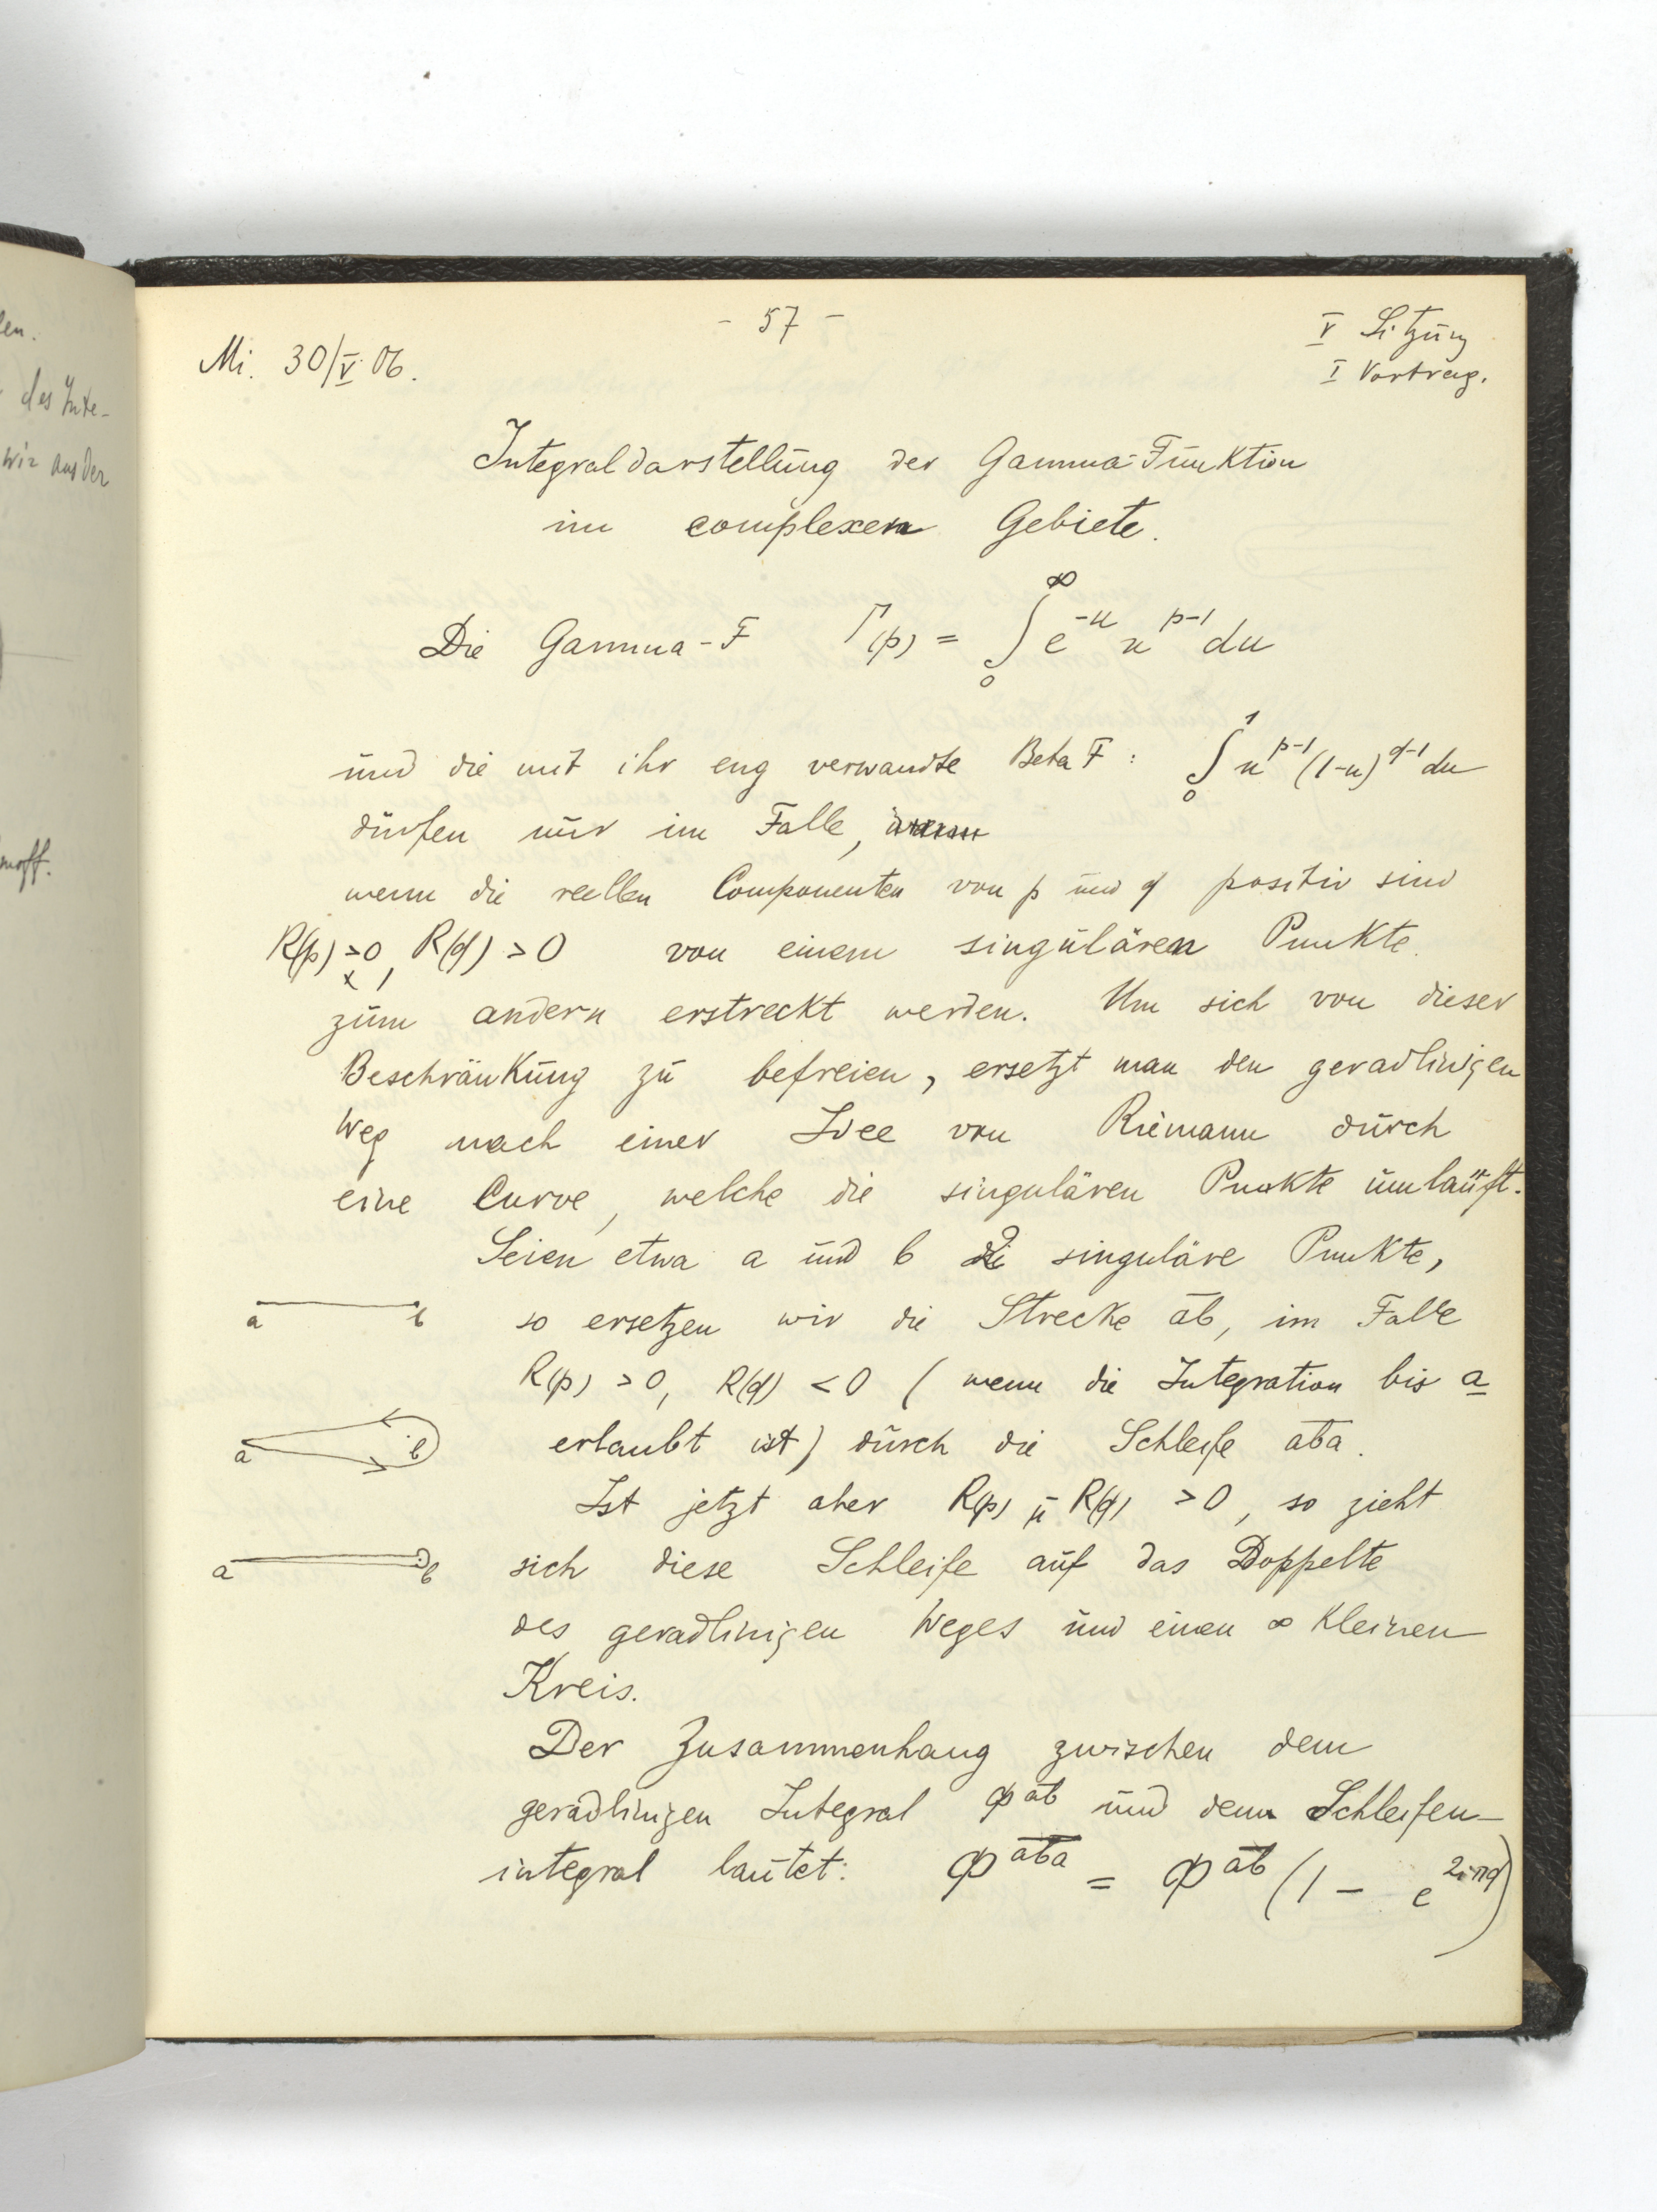 len.
des Inte-
wir aus der
moff.
- 57 -
V Sitzung
I Vortrag.
Mi. 30/V. 06.
Integraldarstellung der Gamma-Funktion
im complexen Gebiete.
Die Gamma-F Γ(p) = ∫₀^∞ e^{-u} u^{p-1} du
und die mit ihr eng verwandte Beta F: ∫₀^1 u^{p-1} (1-u)^{q-1} du
dürfen nur im Falle,
wenn die reellen Componenten von p und q positiv sind
R(p) > 0, R(q) > 0 von einem singulären Punkte
zum andern erstreckt werden. Um sich von dieser
Beschränkung zu befreien, ersetzt man den geradlinigen
Weg nach einer Idee von Riemann durch
eine Curve, welche die singulären Punkte umläuft.
Seien etwa a und b 2 singuläre Punkte,
a b so ersetzen wir die Strecke ab, im Falle
R(p) > 0, R(q) < 0 (wenn die Integration bis a
a b erlaubt ist) durch die Schleife aba.
Ist jetzt aber R(p) u R(q) > 0, so zieht
a b sich diese Schleife auf das Doppelte
des geradlinigen Weges und einen ∞ kleinen
Kreis.
Der Zusammenhang zwischen dem
geradlinigen Integral Φ^{ab} und dem Schleifen-
integral lautet: Φ^{aba} = Φ^{ab} (1 - e^{2iπq})